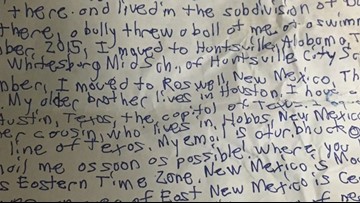 there. and lived in the subdivision of
there, a bully threw a ball at me, at a swimm
ber, 2015, I moved to Huntsville, Alabama, T
Whitesburg Mid Sch., of Huntsville City Sc
mber, I moved to, Roswell, New Mexico, Th
My older brother lives in Houston, I have a
Austin, Texas, the capitol of Texas
er cousin, who lives in, Hobbs, New Mexico
line of Texas. My email is
mail me as soon as possible! where you
s Eastern Time Zone. New Mexico is Mo
of East New Mexico is Ce